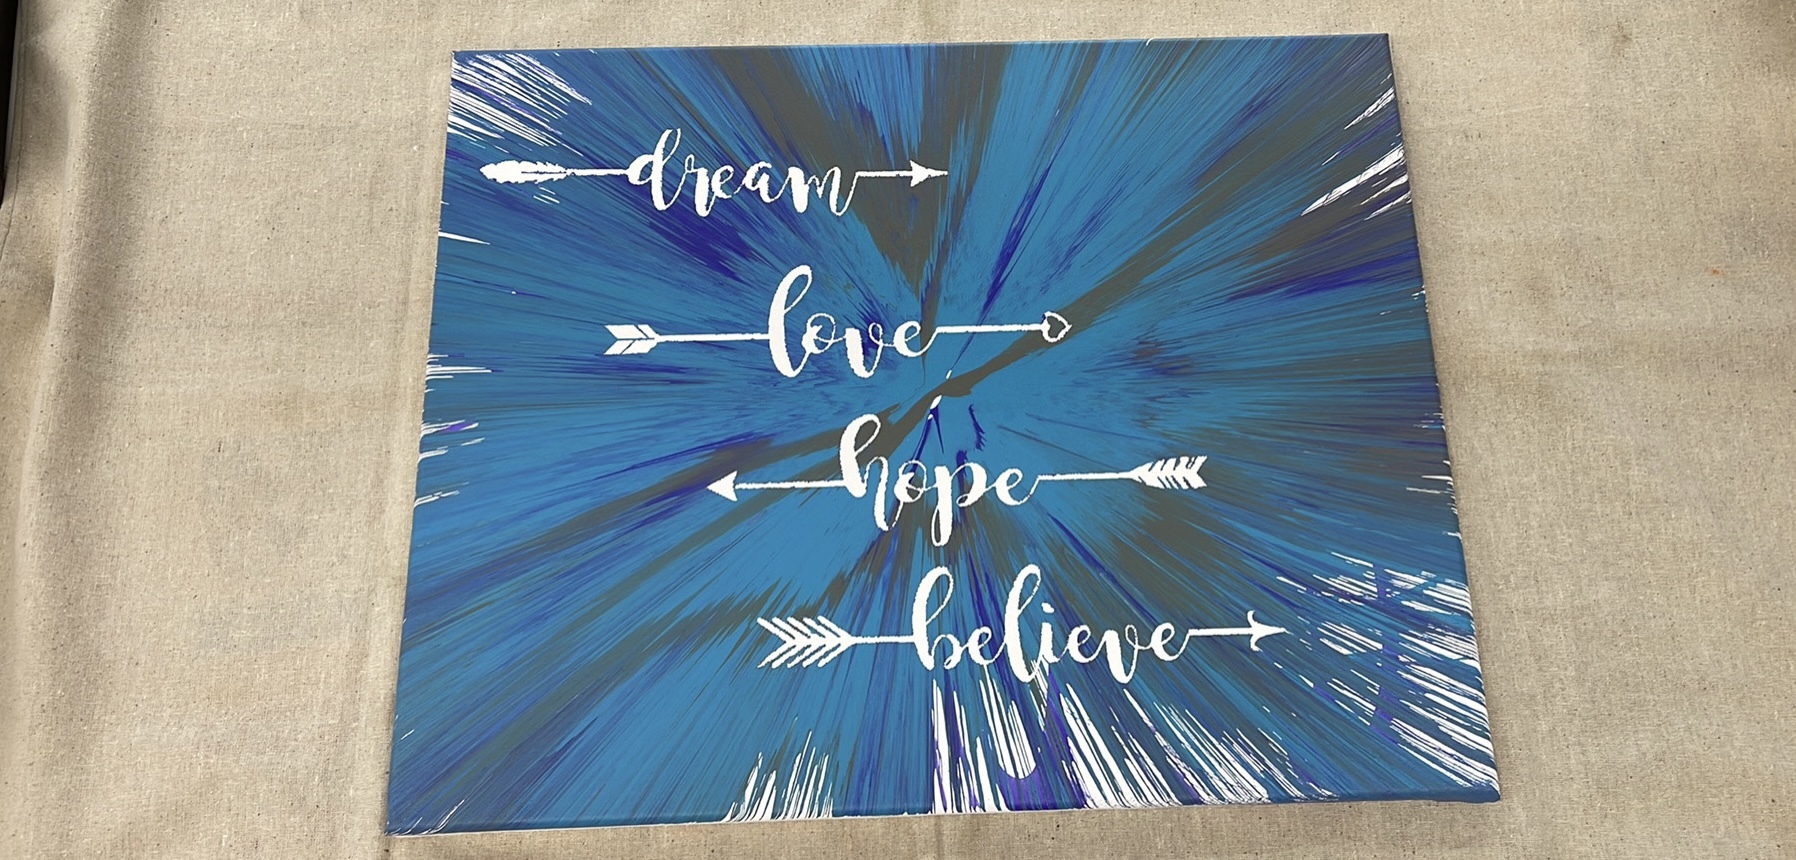 dream
love
hope
believe